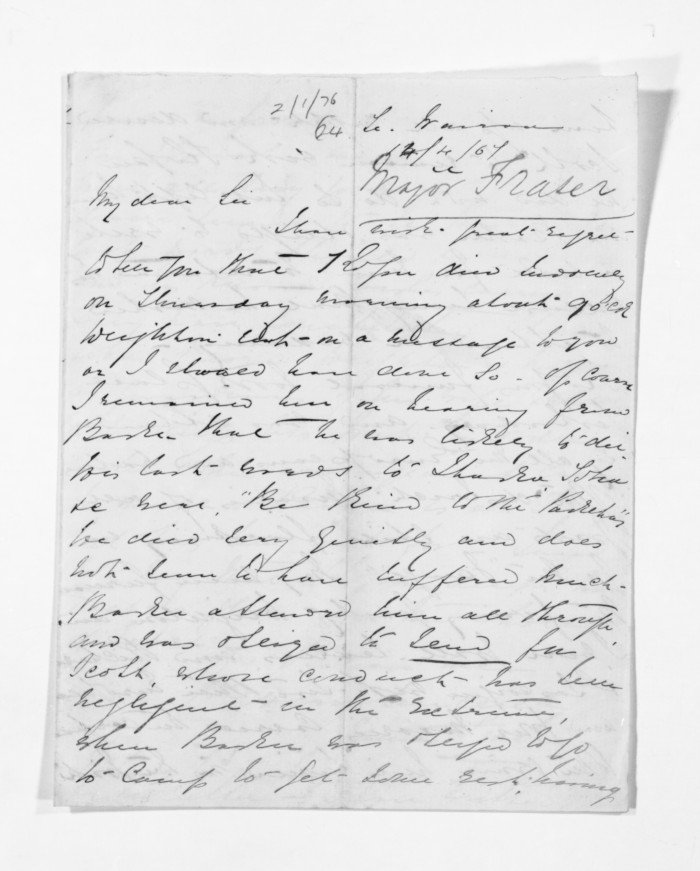 2/1/76
64
Te. Wairoa
14/4/67
Major Fraser
My dear Sir
I have with great regret
to tell you that died
on Thursday morning about 9 o'clock
Deighton sent on a message to you
or I should have done so. of course
I remained here on hearing from
Barker that he was likely to die
his last words to Ihaka,
&c were, "Be kind to the Pakehas"
he died very quietly and does
not seem to have suffered much.
Barker attended him all through,
and was obliged to send for
Scott, whose conduct has been
negligent in the extreme,
when Barker was obliged to go
to Camp to get some rest, having